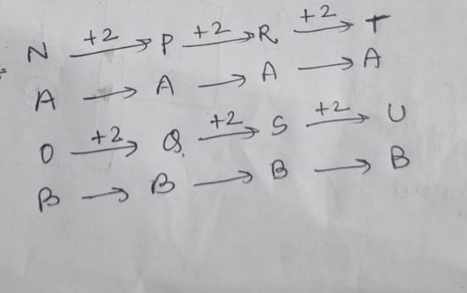 N +2→ P +2→ R +2→ T
A → A → A → A
O +2→ Q +2→ S +2→ U
B → B → B → B